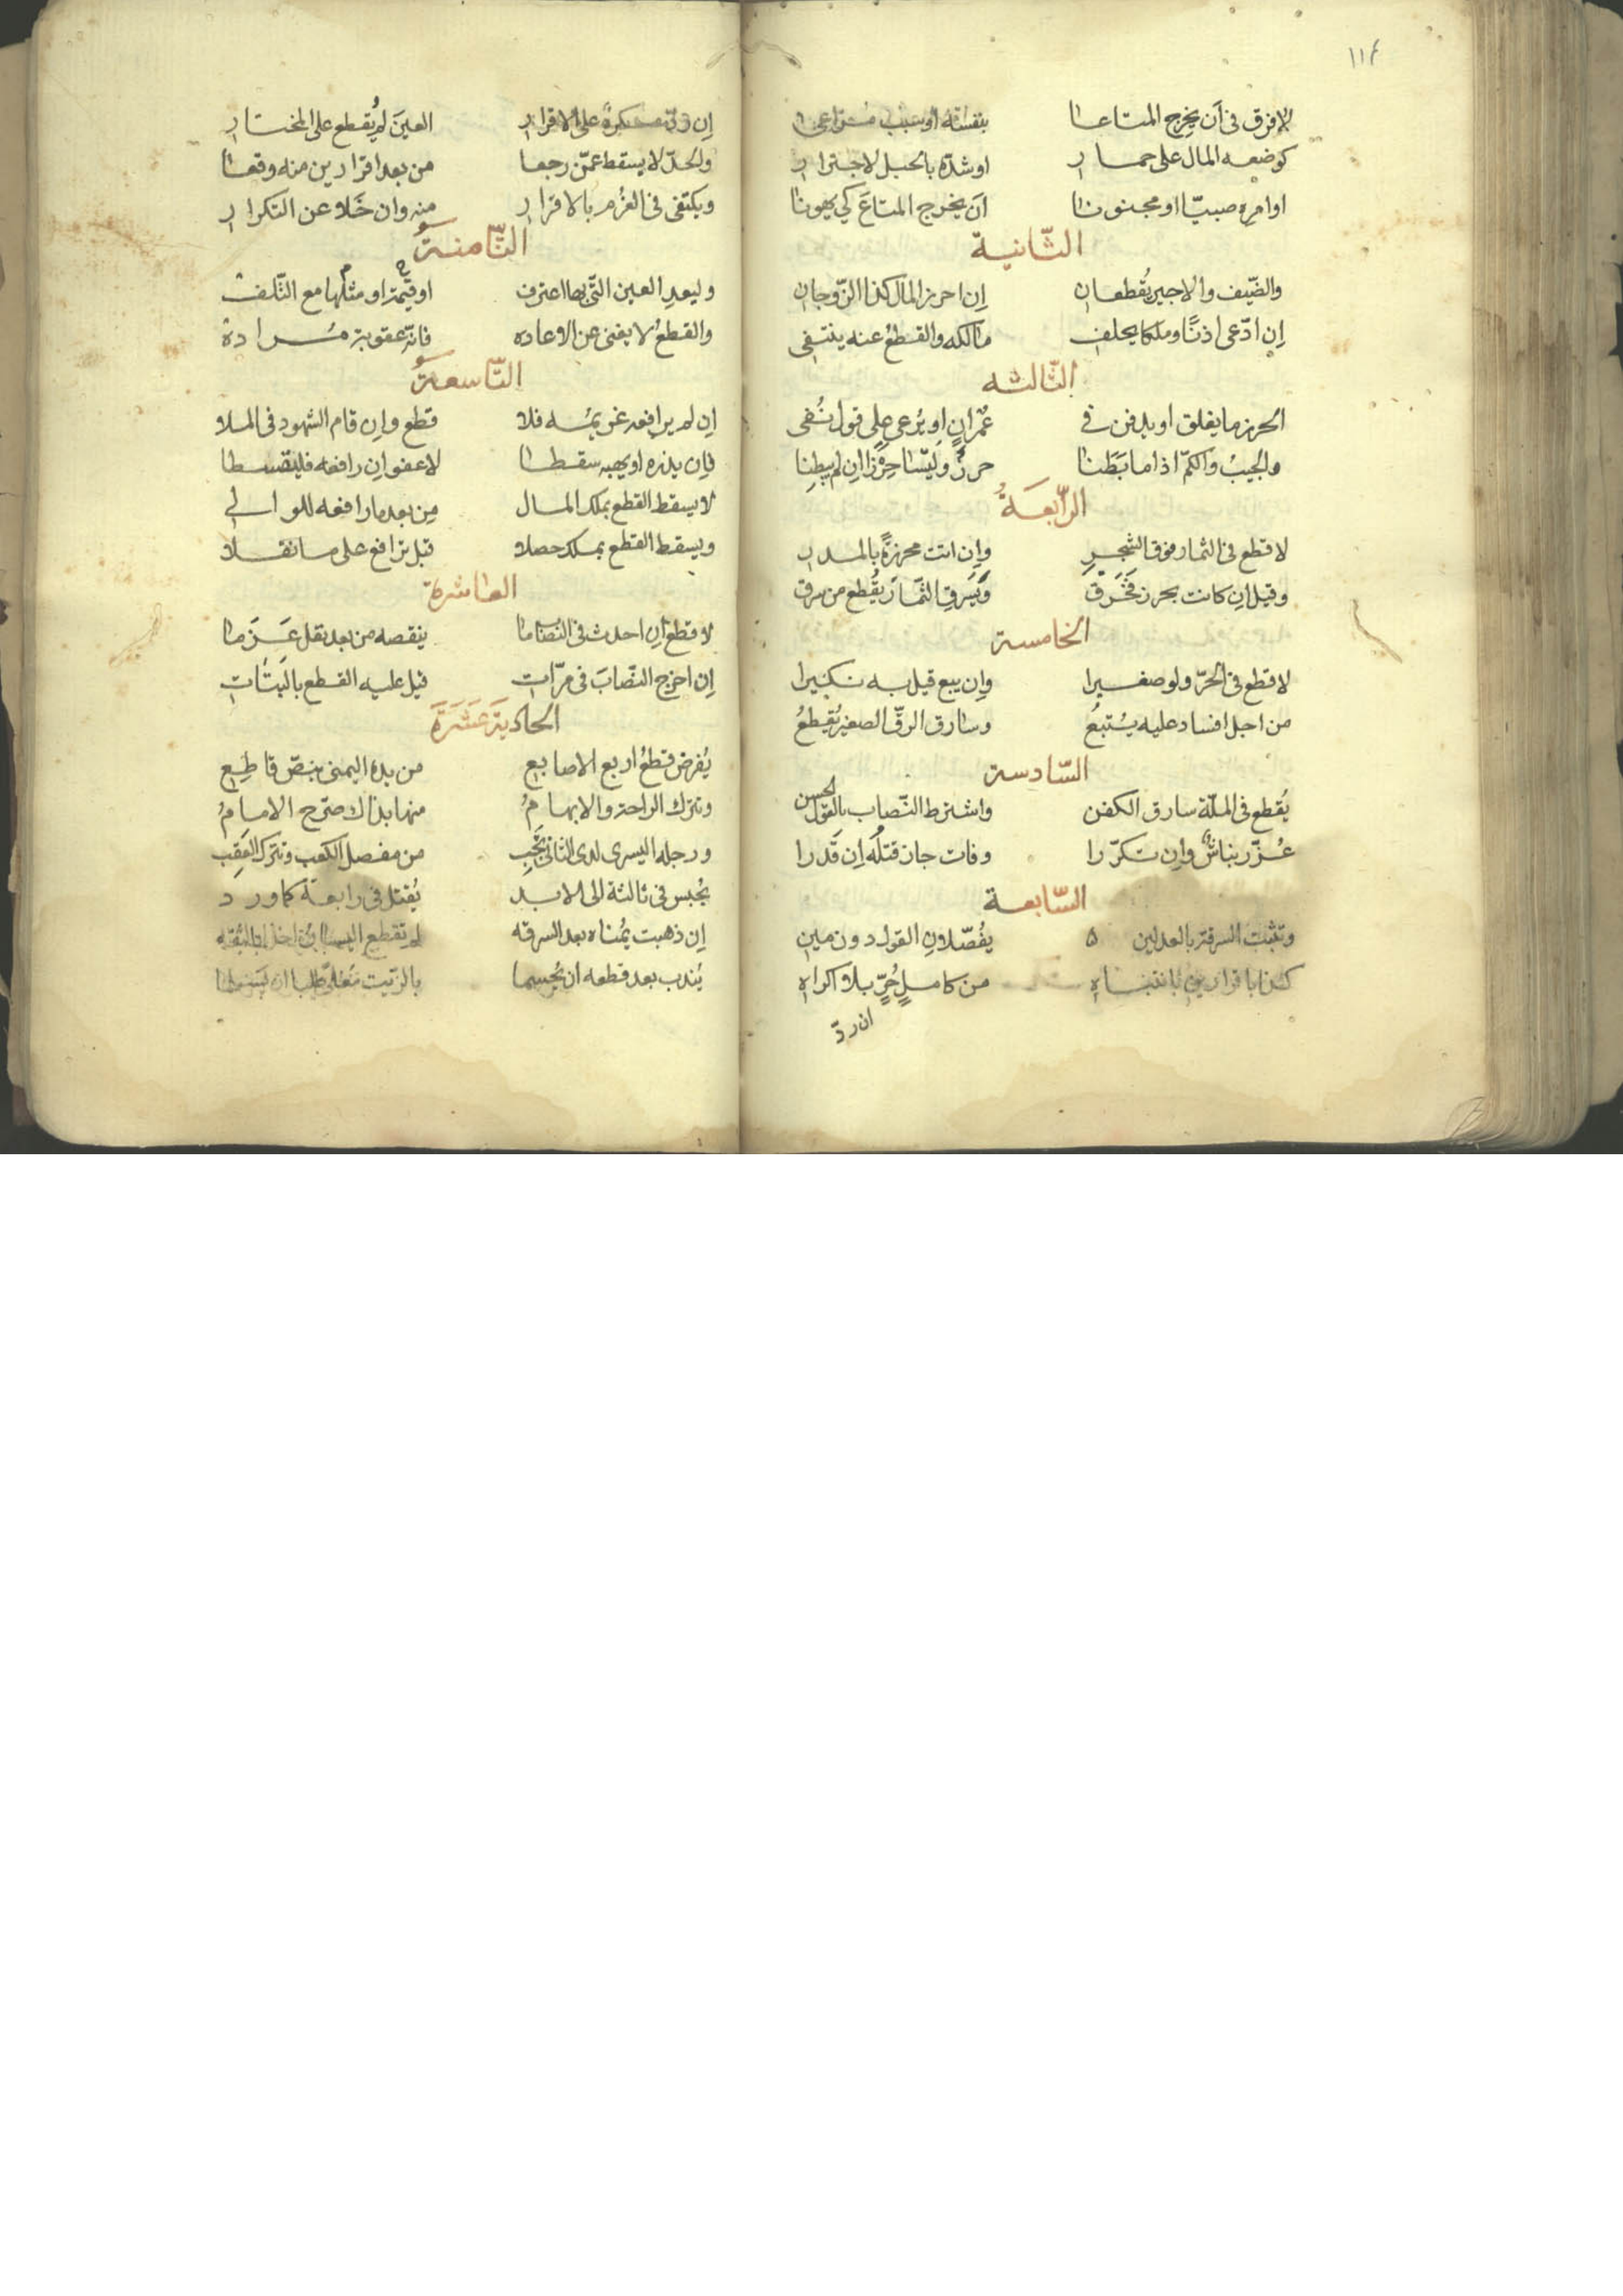 ١١٤
لا فرق في أن يخرج المتاعا بنفسه أو سبب
كوضعه المال على حمار او شدّه بالحبل لاجترار
او امره صبيّا او مجنونا ان يخرج المتاع كي يهونا
الثّانية
والضّيف والاجير يُقطعان إن احرز المال كذا الزّوجان
إن ادّعى اذنًا وملكا يحلف مالكه والقطعُ عنه ينتفى
الثّالثه
الحرز ما يغلق او يدفن في عُمْرانٍ او يُرعى على قول نُفى
والجيبُ والكمّ اذا ما بَطَنا حرزٌ وليسا حِرْزًا ان لم يبطِنا
الرّابعَةُ
لا قطع في الثمار فوق الشجرِ وإن اتت محرزةً بالمدر
وقيل ان كانت بحرز فَخَرَق وَيَسرقِ الثّمارَ يُقطع من سرق
الخامسة
لا قطع في الحرّ ولو صغيرا وإن يبع قيل به نكيرا
من اجل افساد عليه يُستبعُ وسارق الرقّ الصغير يُقطعُ
السّادسة
يُقطع في الملّة سارق الكفن واشترط النّصاب بالقول الحسن
عُزّر نباشٌ وإن تكرّرا وفات جاز قتلُه إن قَدَرا
السّابعة
وتثبت السرقة بالعدلين ٥ يفُصّلان القول دون مين
كذا باقرارين بانتباه من كاملٍ حُرٍّ بلا اكراه
ان ردّ
إن ردّ مكرهٌ على الاقرار العينَ لم يُقطع على المختار
والحدّ لا يسقط عمّن رجعا من بعد اقرارين منه وقعا
ويكتفى في الغُرم بالاقرار منه وان خَلا عن التكرار
الثّامنة
وليعدِ العين التّي بها اعترف او قيمة او مثلها مع التّلف
والقطعُ لا يغنى عن الاعاده فانّه عقوبة مُرادة
التّاسعة
إن لم يرافعه غريمُه فلا قطع وإن قام الشهود في الملا
فإن يذره او يهبه سقطا لا عفو إن رافعه فليقسطا
لا يسقط القطع بملك المال مِن بعد ما رافعه للوالي
ويسقط القطع بملك حصلا قبل ترافع على ما نقلا
العاشرة
لا قطع ان احدث في النّصاب ما ينقصه من بعد نقل غَرَما
إن اخرج النصّابَ في مرّات قيل عليه القطع بالبَتات
الحادية عَشَرَةَ
يُفرض قطعُ اربع الاصابع من يده اليمنى بنصّ قاطِع
وتترك الراحة والابهامُ منها بذاك صرّح الامامُ
ورجله اليسرى لدى الثاني تجَِب من مفصل الكعب وتترك العَقِب
يُحبس في ثالثة الى الابد يُقتل في رابعة كما ورد
إن ذهبت يُمناه بعد السرقه لم تقطع اليسار
يُندب بعد قطعه ان يُحسما بالزّيت